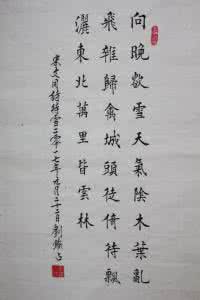 向晚欲雪天氣陰木葉亂
飛雜歸禽城頭徒倚待飄
灑東北萬里皆雲林
宋文同詩待雪二零一七年九月二十二日劉